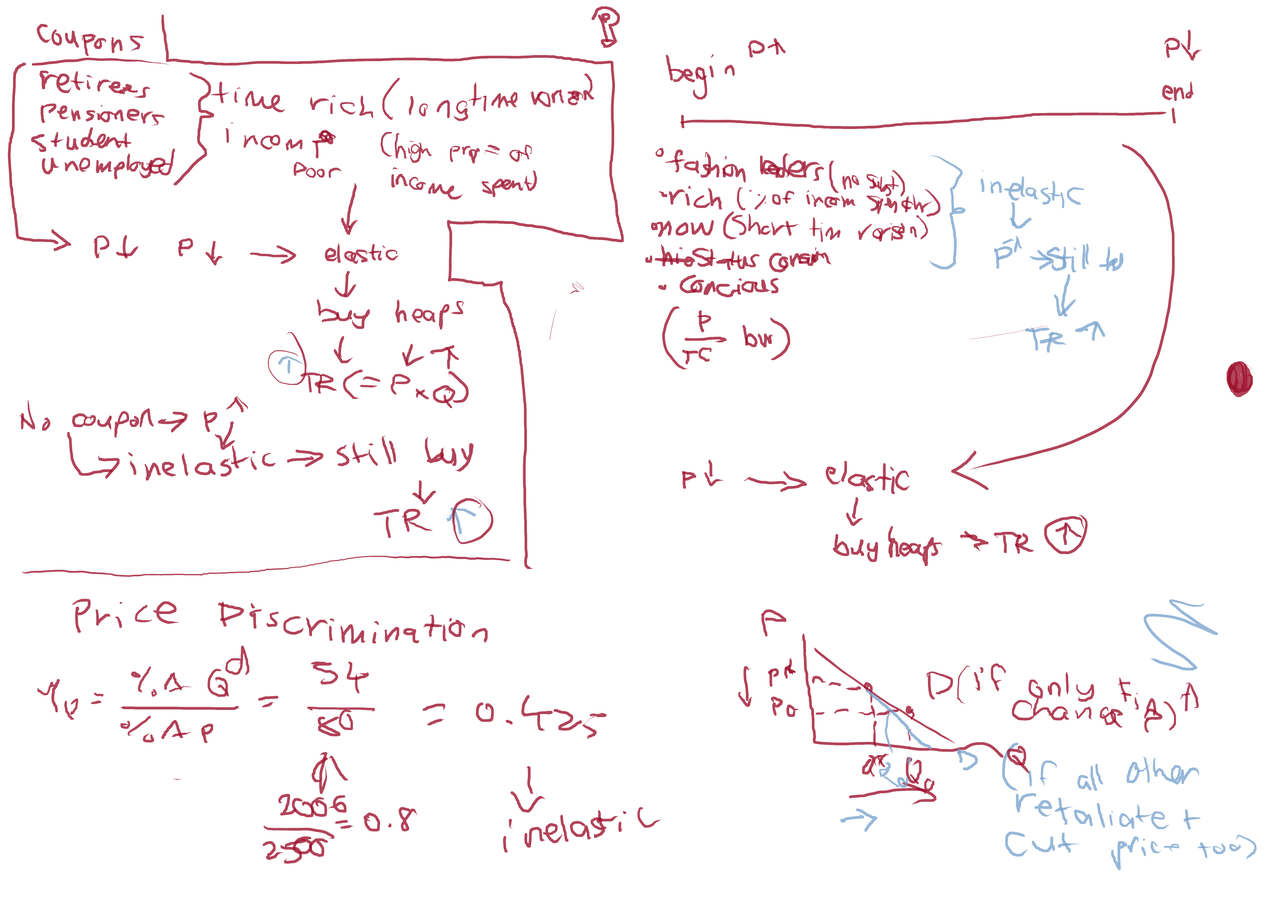 coupons
retirees
pensioners
student
unemployed
time rich (long time
income
poor
(high prop= of
income spent)
P↓ P↓ → elastic
buy heaps
↑ TR (= P x Q)
No coupon → P↑
→ inelastic → still buy
TR ↑
begin P↑
P↓
end
• fashion leaders (no subst)
• rich (% of incom
• now (Short tim
• Status
• concious
(P
TC
inelastic
P↑ → still
TR ↑
P↓ → elastic
buy heaps → TR ↑
Price Discrimination
= %Δ Qd / %Δ P = 34 / 80 = 0.425
2000 / 2500 = 0.8
inelastic
P
P*
P0
Q
Q0
D
D (if only
change P)
(if all other
retaliate +
cut price too)